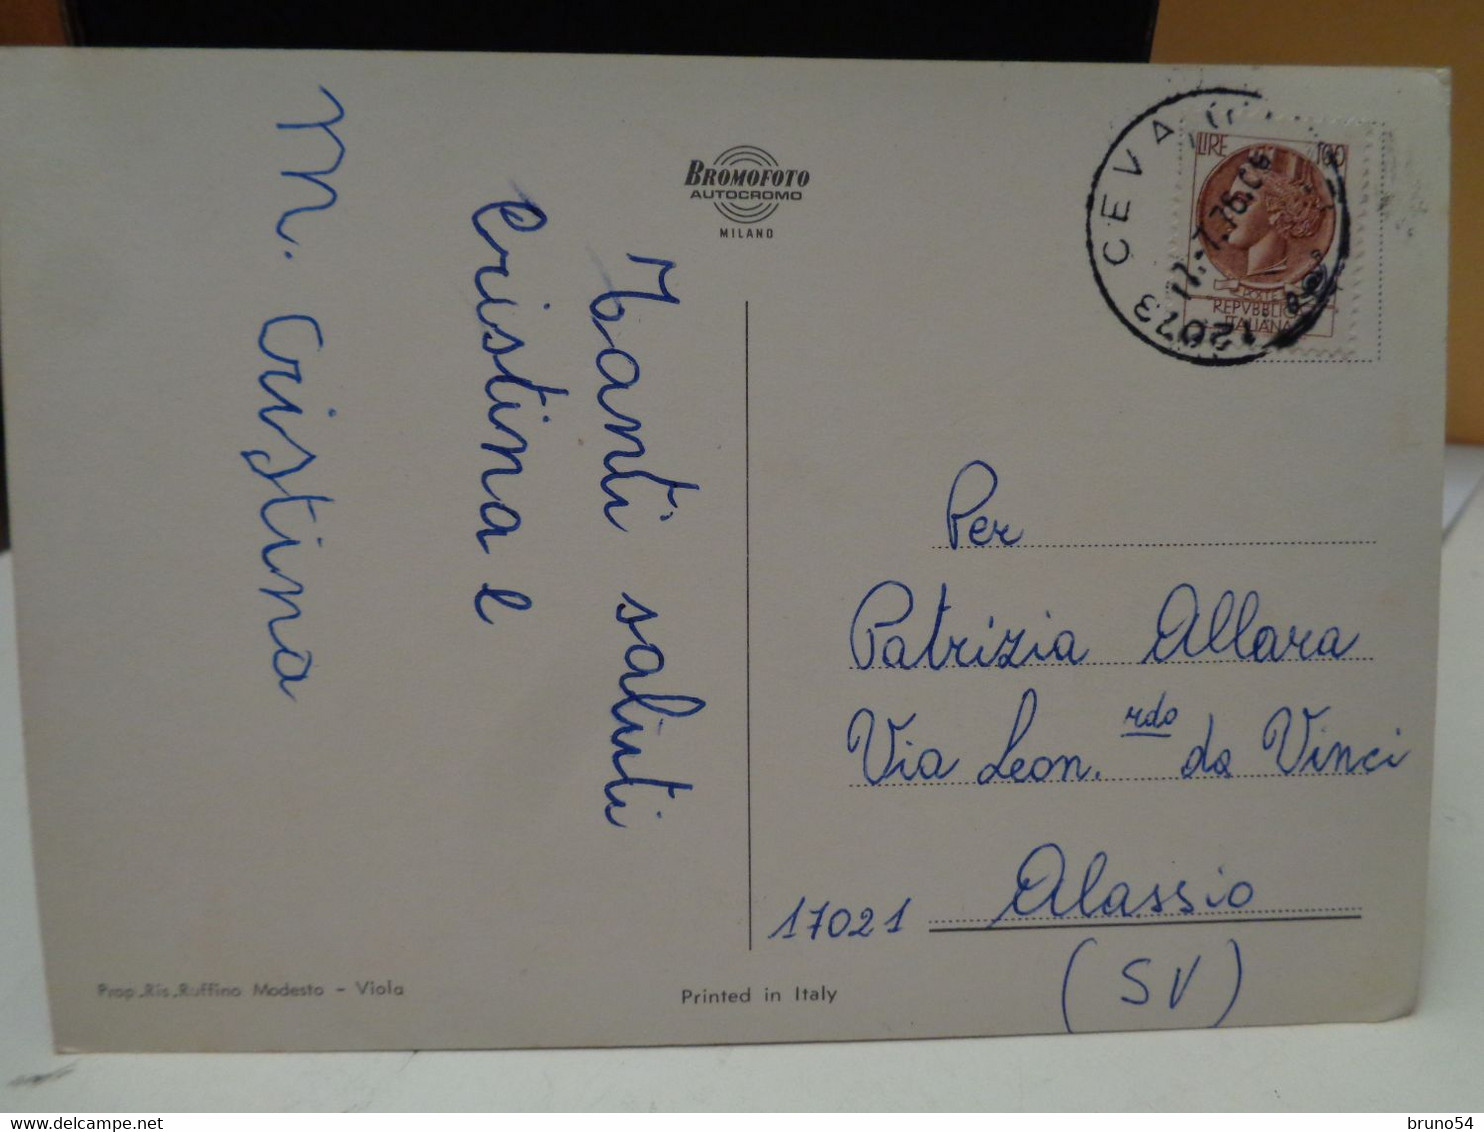 BROMOFOTO
AUTOCROMO
MILANO
Tanti saluti
Cristina e
M. Cristina
12073 CEVA
17.-7.76.
LIRE 100
POSTE
REPVBBLICA
ITALIANA
Per
Patrizia Allara
Via Leon.rdo da Vinci
17021 Alassio
(SV)
Prop.Ris.Ruffino Modesto - Viola
Printed in Italy
bruno54